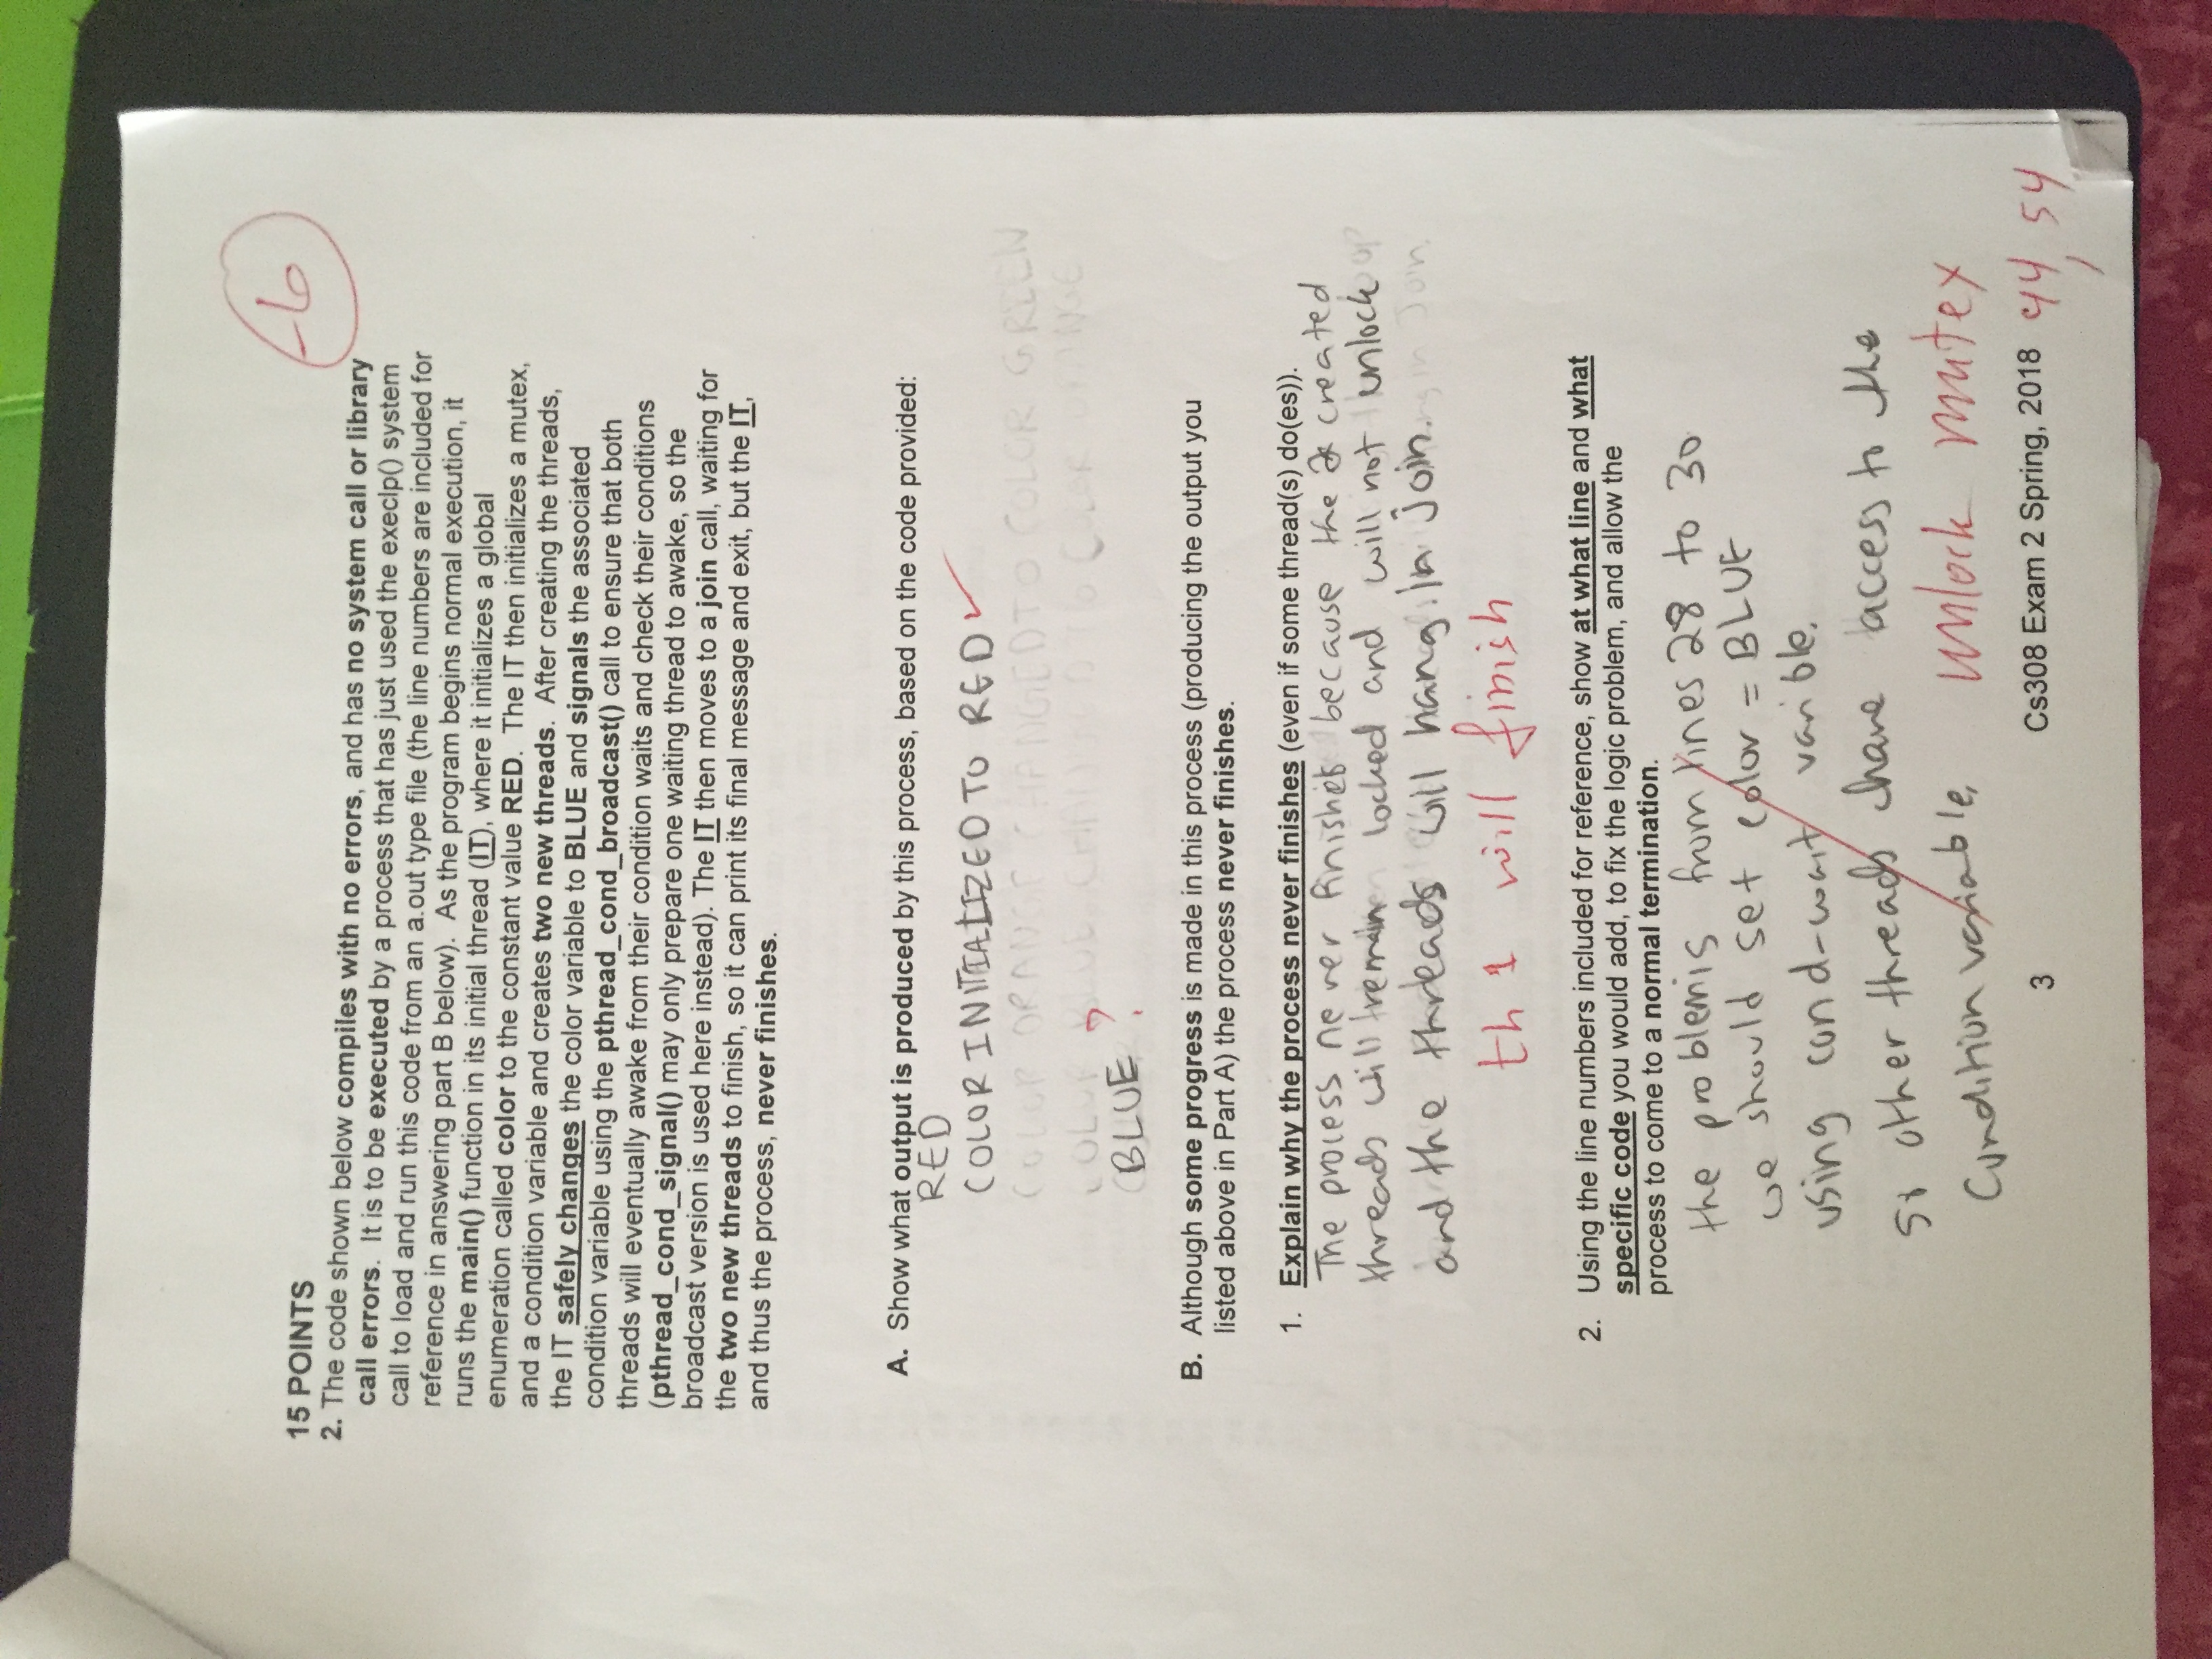 -6
15 POINTS
2. The code shown below compiles with no errors, and has no system call or library
call errors. It is to be executed by a process that has just used the execlp() system
call to load and run this code from an a.out type file (the line numbers are included for
reference in answering part B below). As the program begins normal execution, it
runs the main() function in its initial thread (IT), where it initializes a global
enumeration called color to the constant value RED. The IT then initializes a mutex,
and a condition variable and creates two new threads. After creating the threads,
the IT safely changes the color variable to BLUE and signals the associated
condition variable using the pthread_cond_broadcast() call to ensure that both
threads will eventually awake from their condition waits and check their conditions
(pthread_cond_signal() may only prepare one waiting thread to awake, so the
broadcast version is used here instead). The IT then moves to a join call, waiting for
the two new threads to finish, so it can print its final message and exit, but the IT,
and thus the process, never finishes.
A. Show what output is produced by this process, based on the code provided:
RED
COLOR INITIALIZED TO RED ✓
COLOR ORANGE CHANGED TO COLOR GREEN
COLOR BLUE CHANGED TO COLOR ORANGE
BLUE ?
B. Although some progress is made in this process (producing the output you
listed above in Part A) the process never finishes.
1. Explain why the process never finishes (even if some thread(s) do(es)).
The process never finishes because the created
threads will remain locked and will not unlock
and the threads will hang. In join.
th 1 will finish
2. Using the line numbers included for reference, show at what line and what
specific code you would add, to fix the logic problem, and allow the
process to come to a normal termination.
the problemis from lines 28 to 30
we should set color = BLUE
using cond-wait varible.
so other threads have access to the
Condition variable.
unlock mutex
3
Cs308 Exam 2 Spring, 2018
44, 54